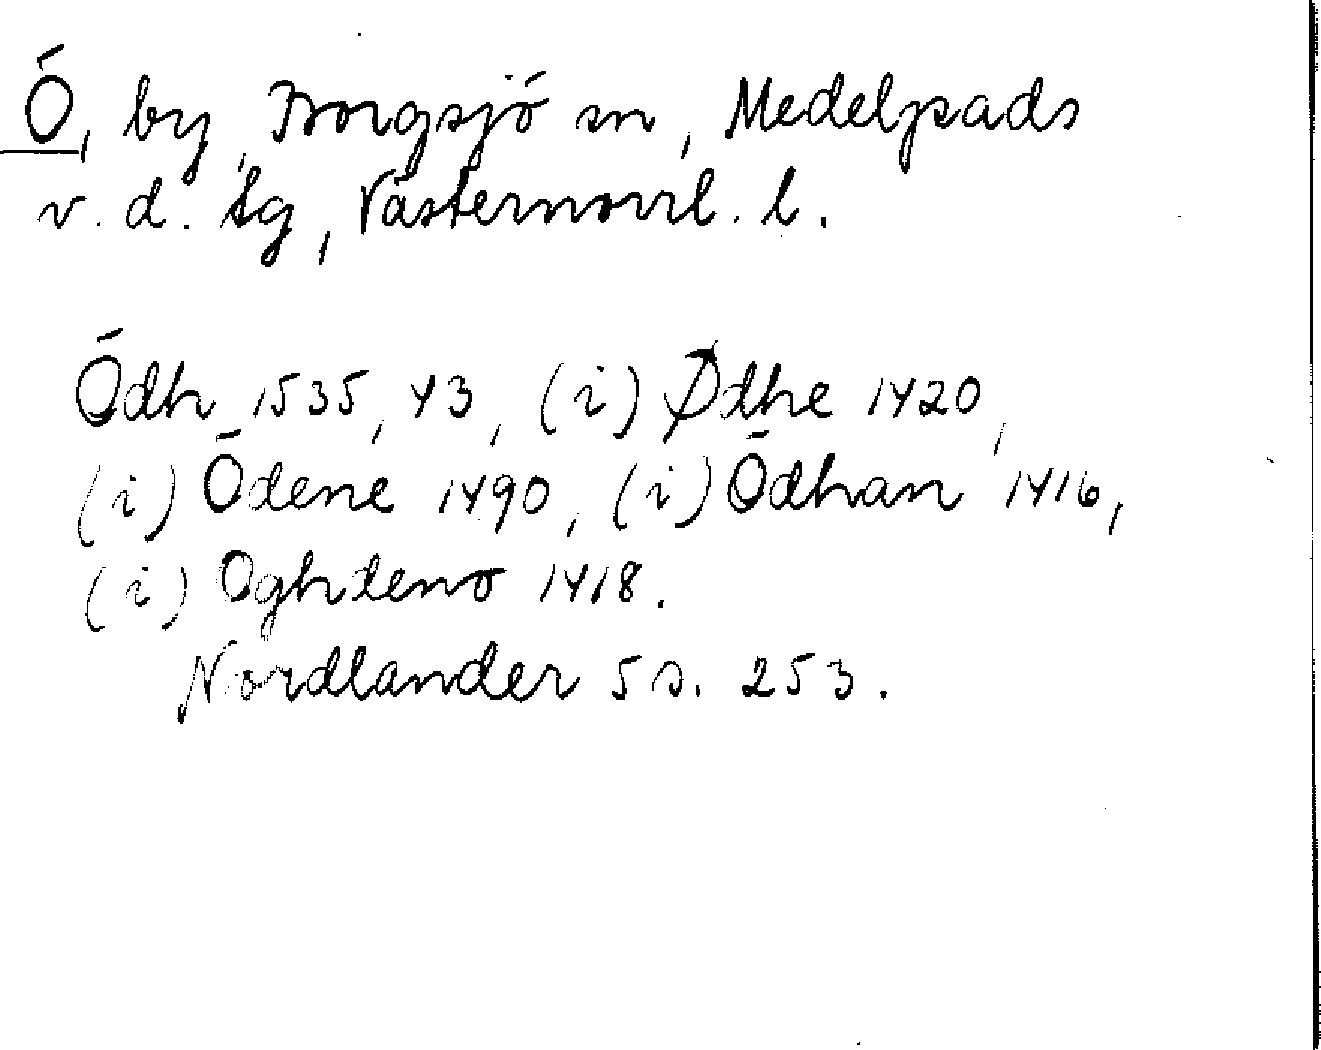 Ö, by, Borgsjö sn, Medelpads
v. d. tg, Västernorrl. l.
Ödh 1535, 43, (i) Ødhe 1420,
(i) Ödene 1490, (i) Ödhan 1416,
(i) Oghdeno 1418.
Nordlander 5 s. 253.